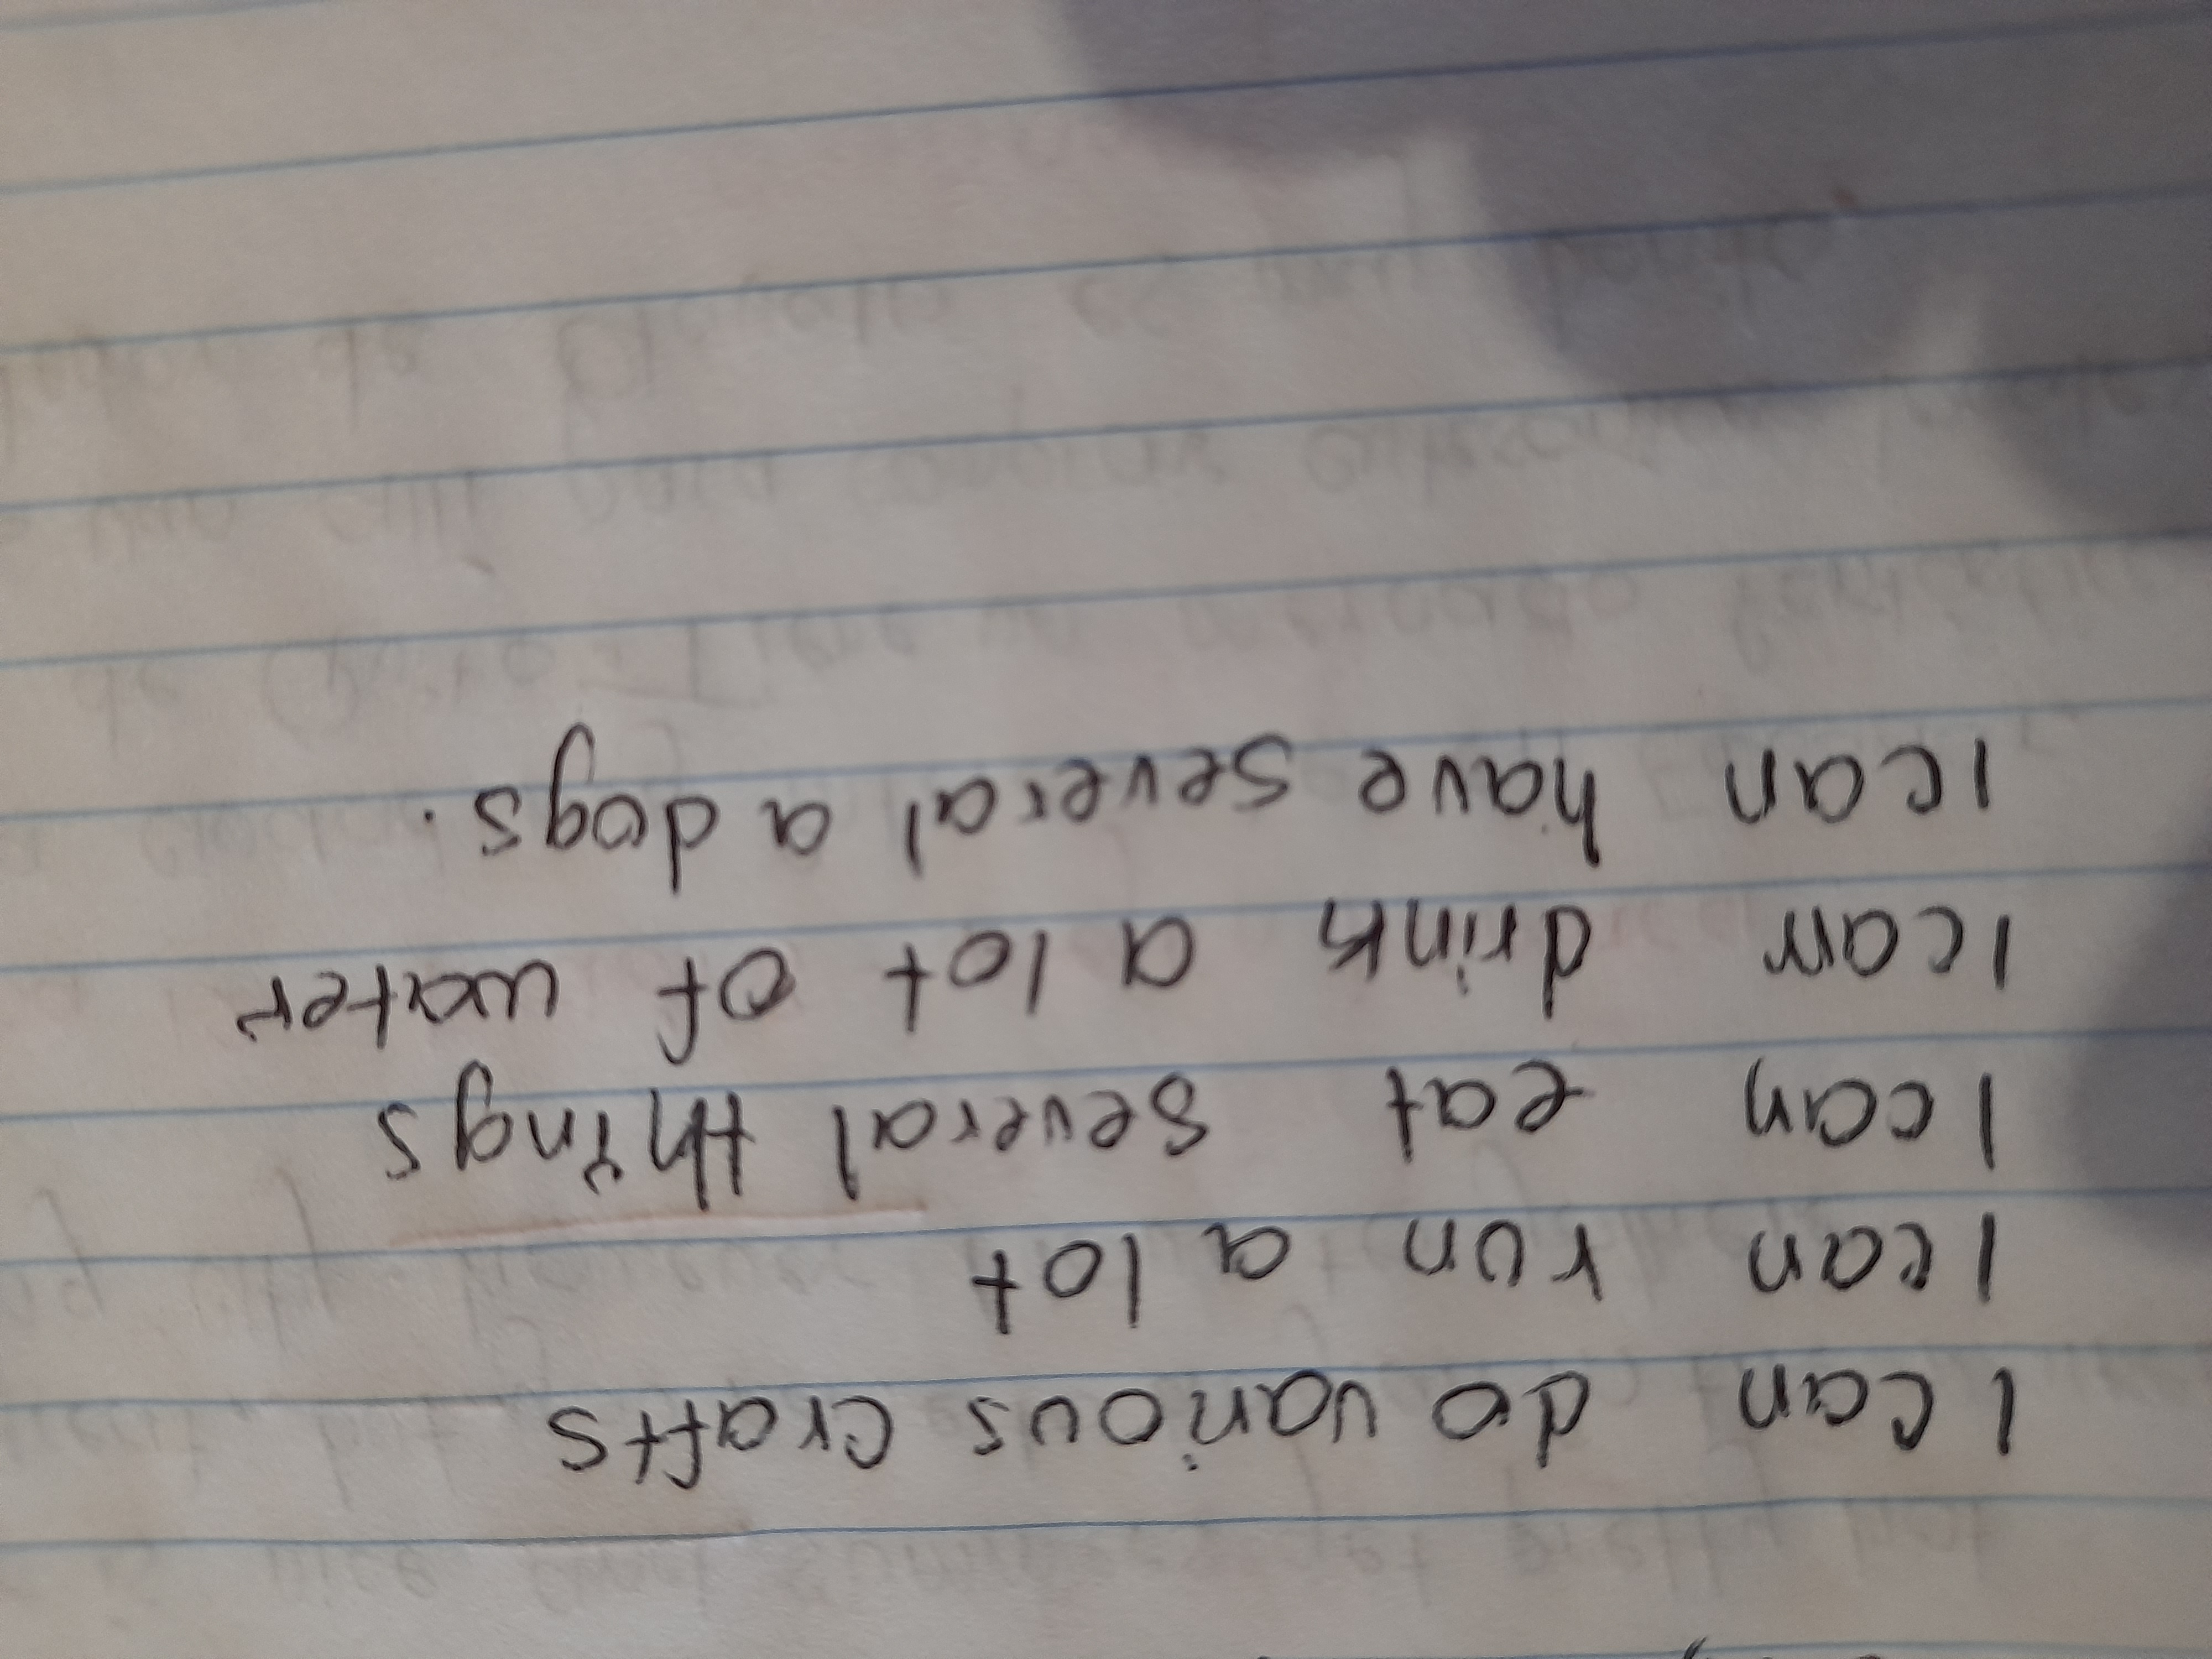 I can do various crafts
I can run a lot
I can eat several things
I can drink a lot of water
I can have several a dogs.